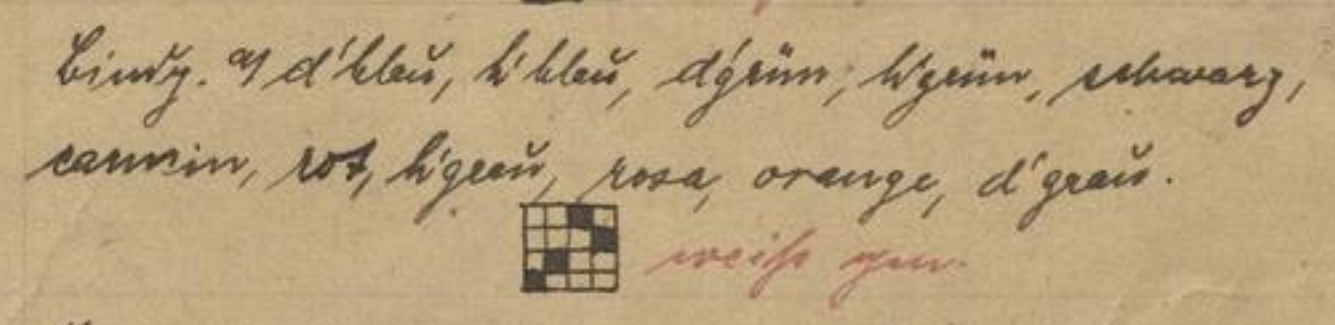 Bindg. a/ d'blau, h'blau, d'grün, h'grün, schwarz,
carmin, rot, h'grau, rosa, orange, d'grau.
weiß gew.